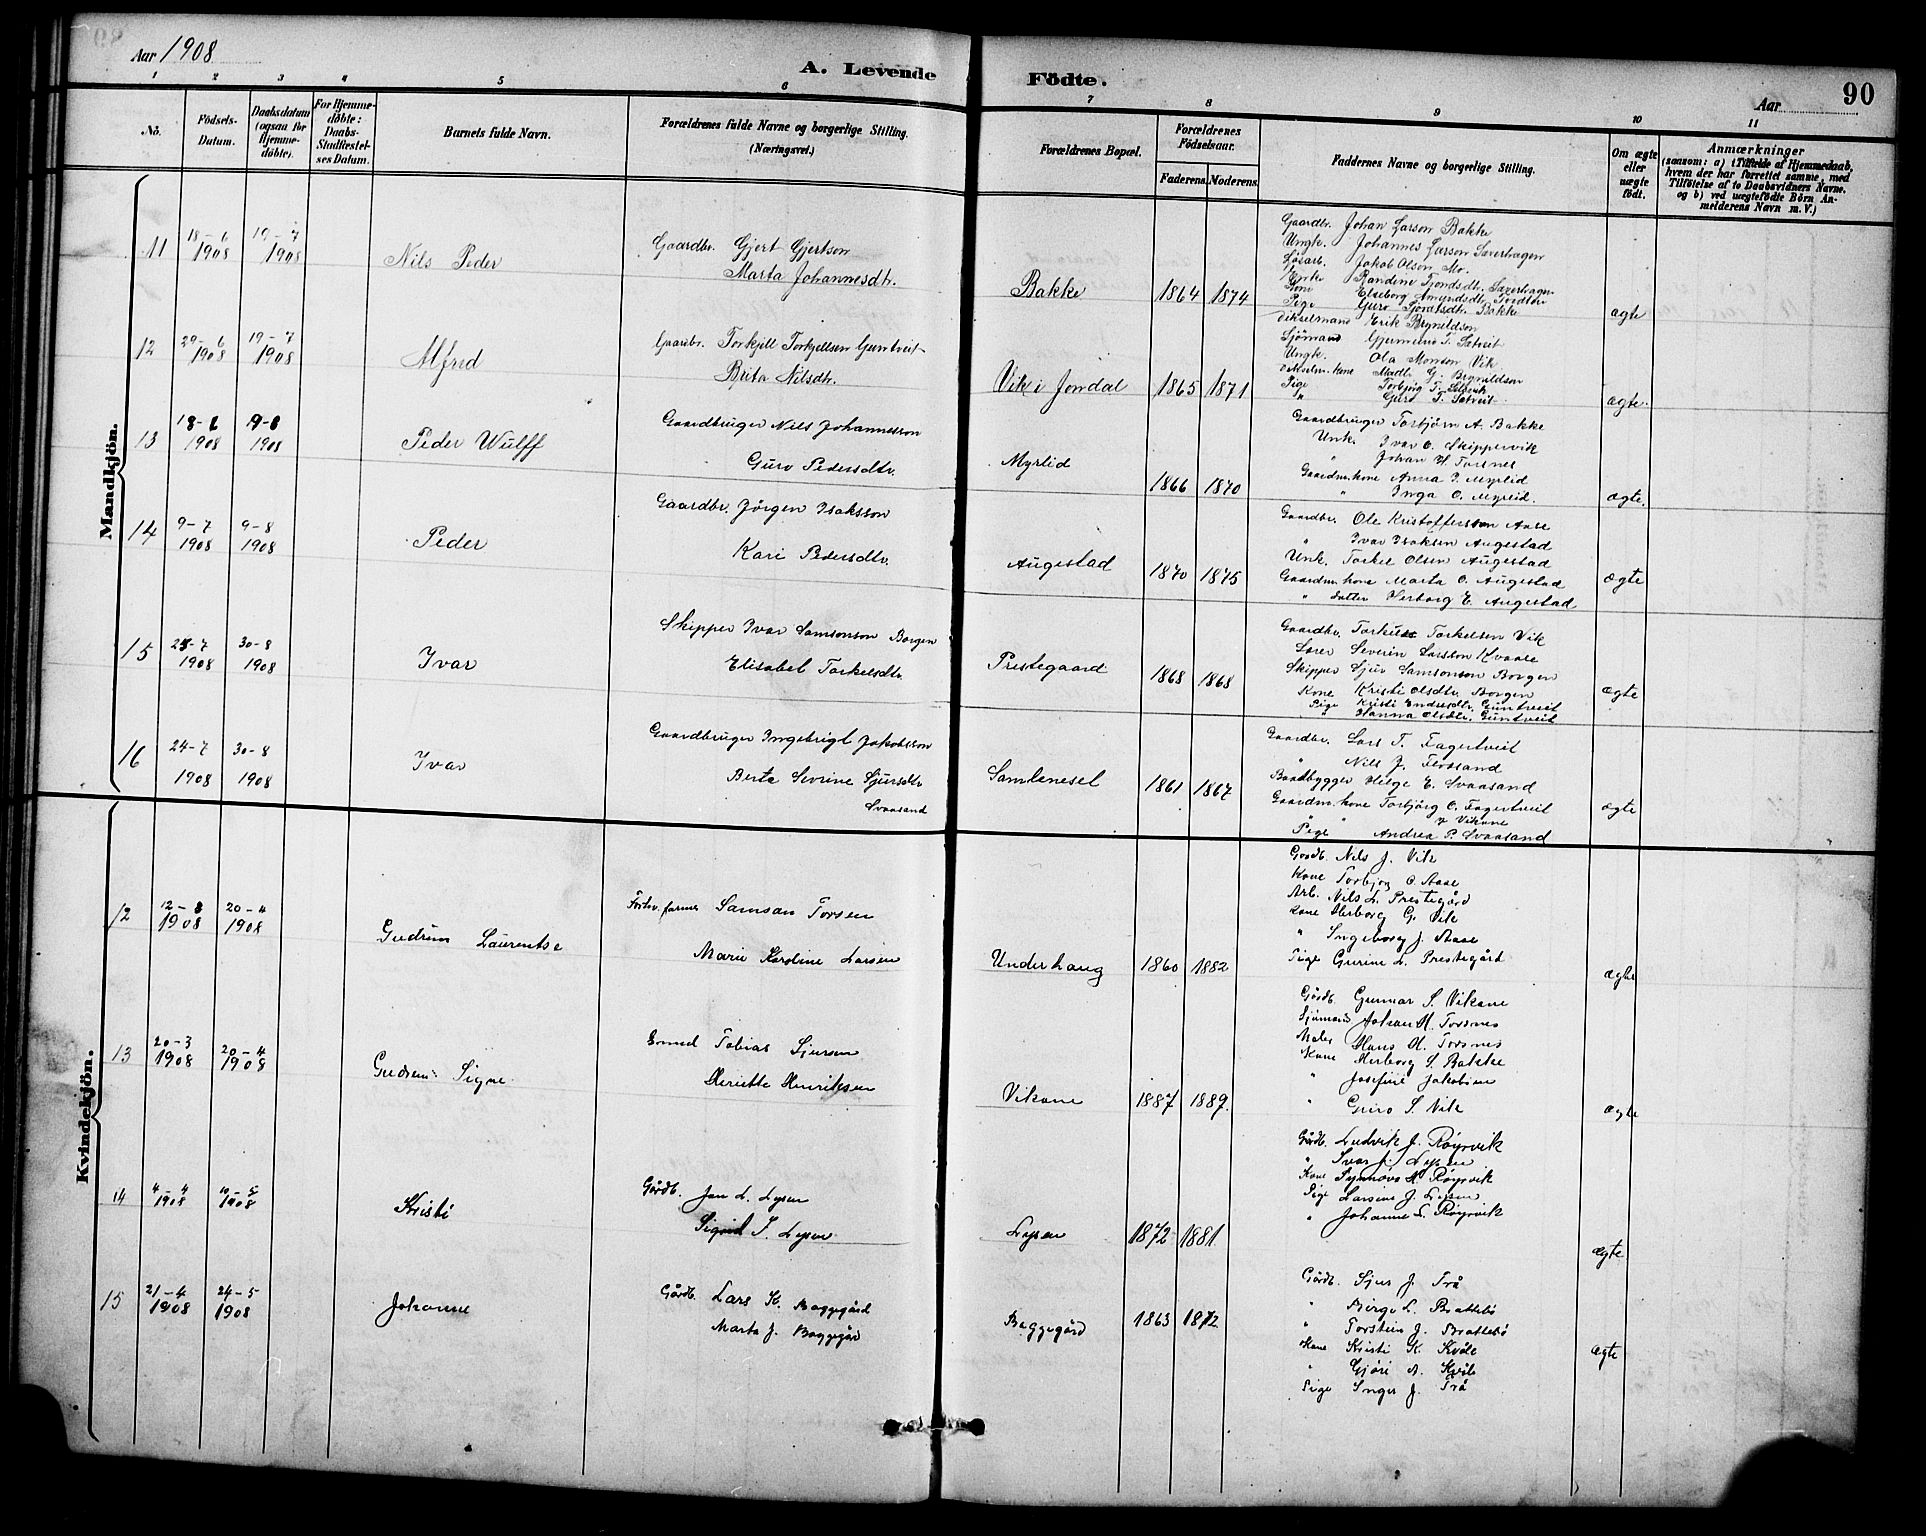 Aar 1908
A. Levende Födte.
Aar
90
1 2 3 4 5 6 7 8 9 10 11
No.
Födsels-Datum.
Daabsdatum (ogsaa for Hjemme-döbte).
For Hjemme-döbte: Daabs-Stadfæstel-ses Datum.
Barnets fulde Navn.
Forældrenes fulde Navne og borgerlige Stilling. (Næringsvei.)
Forældrenes Bopæl.
Forældrenes Födselsaar.
Faderens. Moderens.
Faddernes Navne og borgerlige Stilling.
Om ægte eller uægte födt.
Anmærkninger
(saasom: a) i Tilfælde af Hjemmedaab,
hvem der har forrettet samme, med
Tilföielse af to Daabsvidners Navne.
og b) ved uægtefödte Börn An-
melderens Navn m. V.)
Mandkjön.
11 18-6 1908 19-7 1908 Nils Peder
Gaardbr. Gjert Gjertson
Marta Johannesdtr.
Bakke 1864 1874
Gaardbr. Johan Larson Bakke
Ungk. Johannes Larson Saxerhagen
Løsarb. Jakob Olson Mo.
Enke Randine Tjondsdtr. Saxerhagen
Kone Elseborg Amundsdtr.
Pige Guro Bakke
ægte
12 29-6 1908 19-7 1908 Alfred
Gaardbr. Torkjell Torkjellsen Guntveit
Brita Nilsdtr.
Vik i Jondal 1865 1871
Erik Brynildson
Sjömand Gjermund T. Sætveit
Ungk. Ola Monson Vik
kone Madli G. Brynildson
Pige Torbjörg T.
" Guro T. Sætveit
ægte.
13 18-6 1908 9-8 1908 Peder Wulff
Gaardbruger Nils Johannesson
Guro Pedersdtr.
Myrlid 1866 1870
Gaardbruger Torbjörn A. Bakke
Unk. Ivar O. Skippervik
" Johan H. Torsnes
Gaardm. kone Anna I. Myrlid
" Inga O. Myrlid.
ægte.
14 9-7 1908 9-8 1908 Peder
Gaardbr. Jörgen Isaksson
Kari Pedersdtr.
Augestad 1870 1875
Gaardbr. Ole Kristofferson Aase
" Ivar Isaksen Augestad
Unk. Torkel Olsen Augestad
Gaardm. kone Marta O. Augestad
" datter Herborg E. Augestad
ægte
15 25-7 1908 30-8 1908 Ivar
Skipper Ivar Samsonson Borgen
Elisabet Torkelsdtr.
Prestegaard 1868 1868
Gaardbr. Torkel Torkelsen Vik
Lærer Severin Larsson Kvaale
Skipper Sjur Samsonson Borgen
Kone Kristi Olsdtr. Borgen
Pige Kristi Endresdtr. Guntveit
" Hanna Olsdtr. Guntveit
ægte
16 24-7 1908 30-8 1908 Ivar
Gaardbruger Ingebrigt Jakobsson
Berta Sevrine Sjursdtr.
Svaasand
Samlenesel 1861 1867
Gaardbr. Lars T. Fagertveit
" Nils J. Flaasand
Baadbygger Helge E. Svaasand
Gaardm. kone Torbjörg O. Fagertveit
" " J Vikane
Pige Andrea P. Svaasand
ægte
Kvindekjön.
12 12-8 1908 20-4 1908 Gudrun Laurentse
farmer Samson Torsen
Marie Karoline Larsen
Underhaug 1860 1882
Gardb. Nils J. Vik
Kone Torbjorg O. Aase
Arb. Nils L. Prestegård
Kone Herborg G. Vik
" Ingeborg J. Aase
Pige Gurine L. Prestegård
ægte
13 20-3 1908 20-4 1908 Gudrun Signe
Tobias Sjursen
Heriette Henriksen
Vikane 1887 1889.
Gårdb. Gunnar S. Vikane
Sjömand Johan H. Torsnes
Maler Hans H. Torsnes
Kone Herborg S. Bakke
" Josefine Jakobsen
" Guro S. Vik
ægte
14 4-4 1908 10-5 1908 Kristi
Gårdb. Jon L. Lysen
Sigrid I. Lysen
Lysen 1872 1881
Gårdb. Ludvik J. Røyrvik
" Ivar J. Lysen
Kone Synnöva M. Röyrvik
Pige Larsine J. Lysen
" Johanne L. Röyrvik
ægte
15 21-4 1908 24-5 1908 Johanne
Gårdb. Lars K. Baggegård
Marta J. Baggegård
Baggegård 1863 1872
Gårdb. Sjur J. Trå
" Börge L. Brattebö
" Torstein J. Brattebö
Kone Kristi K. Kvåle
" Gjöri A. Kvåle
Pige Inger J. Trå
ægte